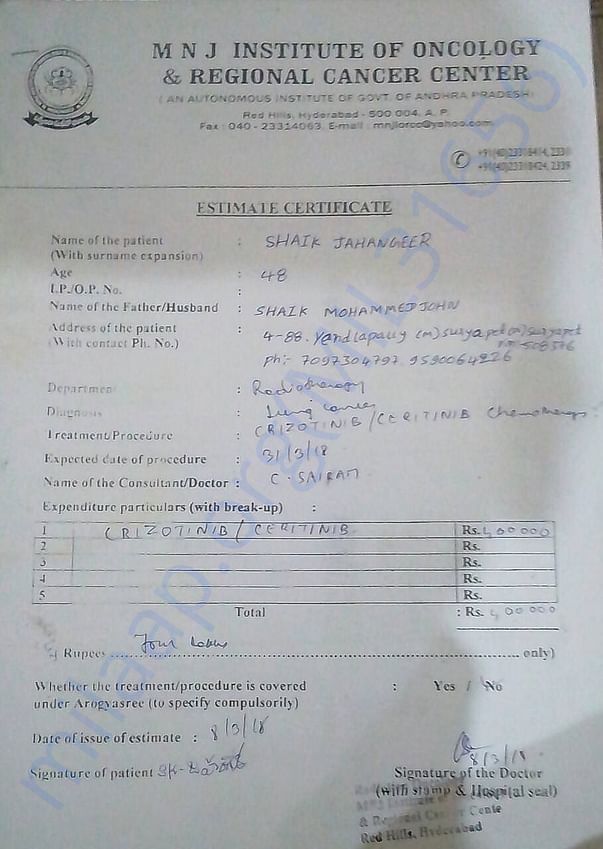 M N J INSTITUTE OF ONCOLOGY
& REGIONAL CANCER CENTER
( AN AUTONOMOUS INSTITUTE OF GOVT. OF ANDHRA PRADESH)
Red Hills, Hyderabad - 500 004. A. P.
Fax : 040 - 23314063, E-mail : mnjiorcc@yahoo.com
+91(40)23318414, 2331
+91(40)23318424, 2339
ESTIMATE CERTIFICATE
Name of the patient : SHAIK JAHANGEER
(With surname expansion)
Age : 48
I.P./O.P. No. :
Name of the Father/Husband : SHAIK MOHAMMEDJOHN
Address of the patient : 4-88. (m) suryapet suryapet
(With contact Ph. No.) 508376
Ph:- 7097304797 9590064826
Department : Radiotherapy
Diagnosis : Lung cancer
Treatment/Procedure : CRIZOTINIB / CERITINIB Chemotherapy
Expected date of procedure : 31/3/18
Name of the Consultant/Doctor : C. SAIRAM
Expenditure particulars (with break-up) :
1 CRIZOTINIB / CERITINIB Rs. 4,00 000
2 Rs.
3 Rs.
4 Rs.
5 Rs.
Total : Rs. 4,00 000
Rupees Four only)
Whether the treatment/procedure is covered : Yes / No
under Arogyasree (to specify compulsorily)
Date of issue of estimate : 8/3/18
8/3/18
Signature of patient
Signature of the Doctor
(with stamp & Hospital seal)
& Regional Cancer Cente
Red Hills, Hyderabad
milaap.org